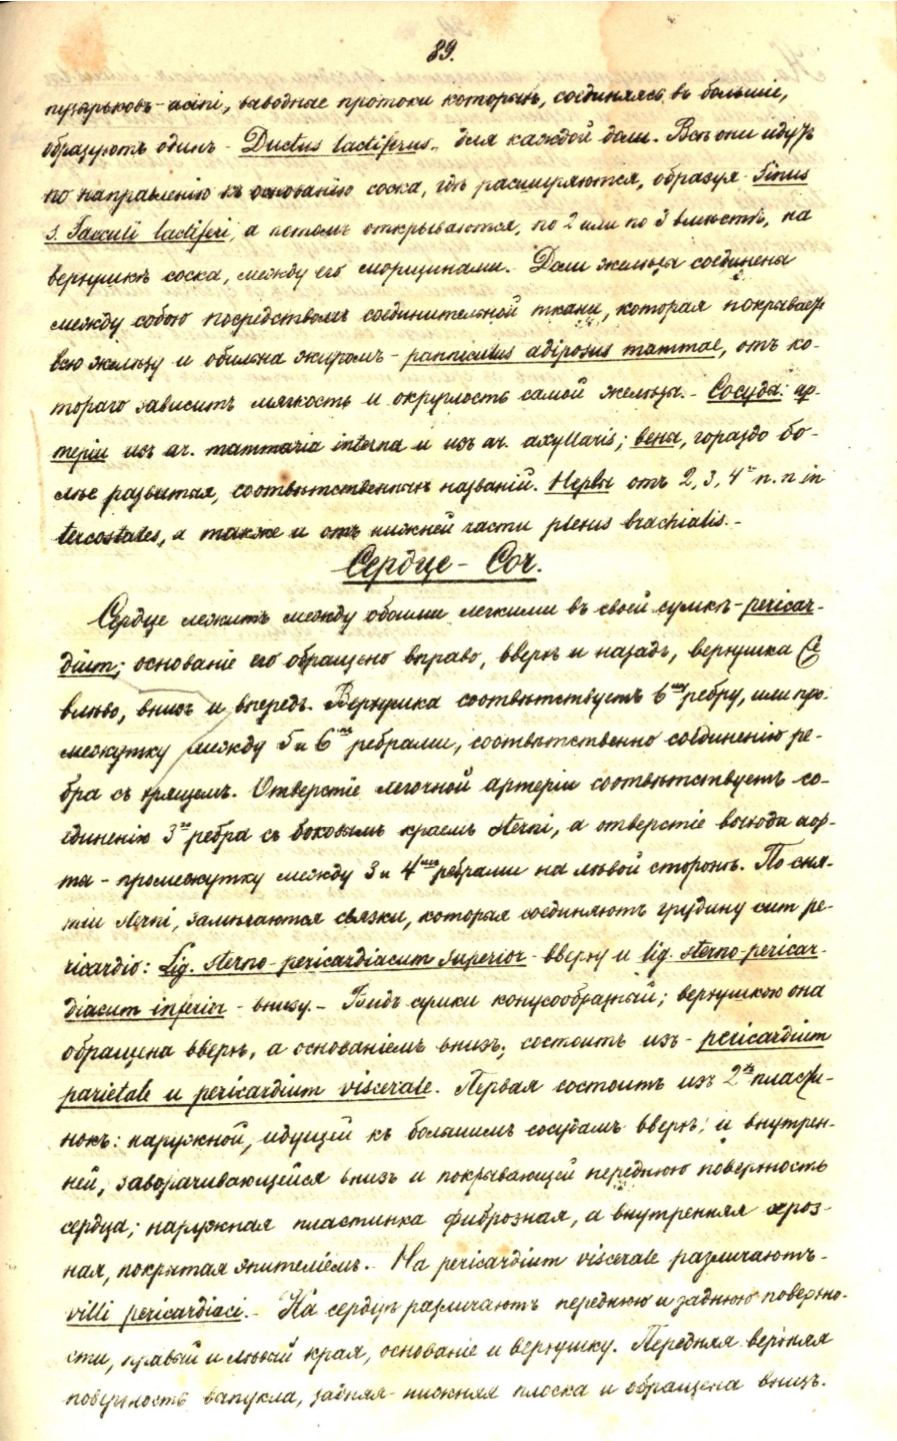 89.
пузырьковъ-acini, выводные протоки которыхъ, соединяясь въ большіе,
образуютъ одинъ - Ductus lactiferus - для каждой доли. Всѣ они идутъ
по направленію къ основанію соска, гдѣ расширяются, образуя - Sinus
s. Sacculi lactiferi, а потомъ открываются, по 2 или по 3 вмѣстѣ, на
верхушкѣ соска, между его морщинами. Доли железы соединены
между собою посредствомъ соединительной ткани, которая покрываетъ
всю железу и обильна жиромъ - panniculus adiposus mammae, отъ ко-
тораго зависитъ мягкость и округлость самой железы. - Сосуды: ар-
теріи изъ ar. mammaria interna и изъ ar. axyllaris; вены, гораздо бо-
лѣе развитыя, соотвѣтственныхъ названій. Нервы отъ 2, 3, 4го n. n in
tercostales, а также и отъ нижней части plexus brachialis. -
Сердце - Cor.
Сердце лежитъ между обоими легкими въ своей сумкѣ - pericar-
dium; основаніе его обращено вправо, вверхъ и назадъ, верхушка
влѣво, внизъ и впередъ. Верхушка соотвѣтствуетъ 6му ребру, или про-
межутку между 5 и 6мъ ребрами, соотвѣтственно соединенію ре-
бра съ хрящемъ. Отверстіе легочной артеріи соотвѣтствуетъ со-
единенію 3го ребра съ боковымъ краемъ sterni, а отверстіе выхода аор-
та - промежутку между 3 и 4мъ ребрами на лѣвой сторонѣ. По сня-
тіи sterni, замѣчаются связки, которыя соединяютъ грудину cum pe-
ricardio: Lig. sterno-pericardiacum superior - вверху и lig. sterno-pericar-
diacum inferior - внизу. - Видъ сумки конусообразный; верхушкою она
обращена вверхъ, а основаніемъ внизъ; состоитъ изъ - pericardium
parietale и pericardium viscerale. Первая состоитъ изъ 2хъ пласти-
нокъ: наружной, идущей къ большимъ сосудамъ вверхъ; и внутрен-
ней, заворачивающейся внизъ и покрывающей переднюю поверхность
сердца; наружная пластинка фиброзная, а внутренняя сероз-
ная, покрытая эпителіемъ. - На pericardium viscerale различаютъ -
villi pericardiaci. - На сердцѣ различаютъ переднюю и заднюю поверхно-
сти, правый и лѣвый края, основаніе и верхушку. Передняя верхняя
поверхность выпукла, задняя-нижняя плоска и обращена внизъ.